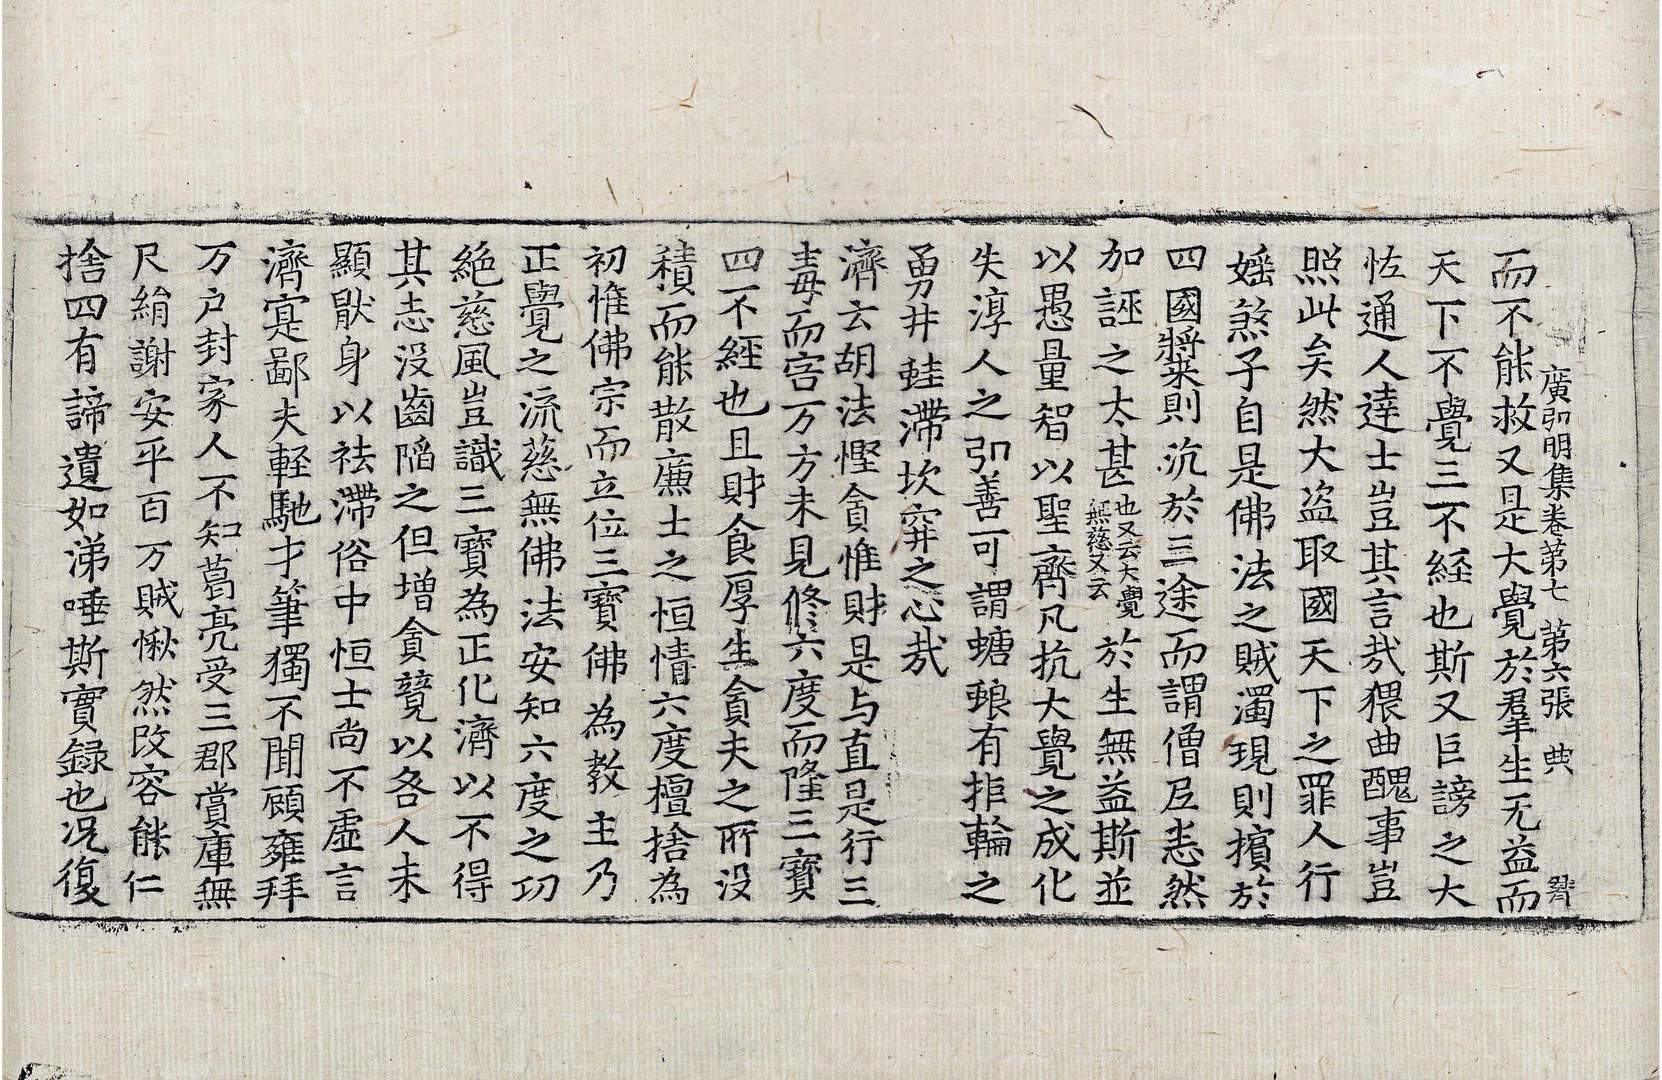 廣弘明集卷第七 第六張 典
而不能救又是大覺於羣生无益而
天下不覺三不経也斯又巨謗之大
恠通人達士豈其言㦲猥曲醜事豈
照此矣然大盗取國天下之罪人行
婬煞子自是佛法之賊濁現則擯於
四國將来則沉於三途而謂僧尼恚然
加誣之太甚也又云大覺無慈又云於生無益斯並
以愚量智以聖齊凡抗大覺之成化
失淳人之弘善可謂螗蜋有拒輪之
勇井蛙滯坎穽之心㦲
濟云胡法慳貪惟財是与直是行三
毒而害万方未見修六度而隆三寶
四不經也且財食厚生貪夫之所没
積而能散廉士之恒情六度檀捨為
初惟佛宗而立位三寶佛為教主乃
正覺之流慈無佛法安知六度之功
絕慈風豈識三寶為正化濟以不得
其志没齒陷之但增貪競以各人未
顯猒身以祛滯俗中恒士尚不虚言
濟寔鄙夫輕馳才筆獨不聞顧雍拜
万户封家人不知葛亮受三郡賞庫無
尺絹謝安平百万賊愀然改容能仁
捨四有諦遺如涕唾斯實録也况復